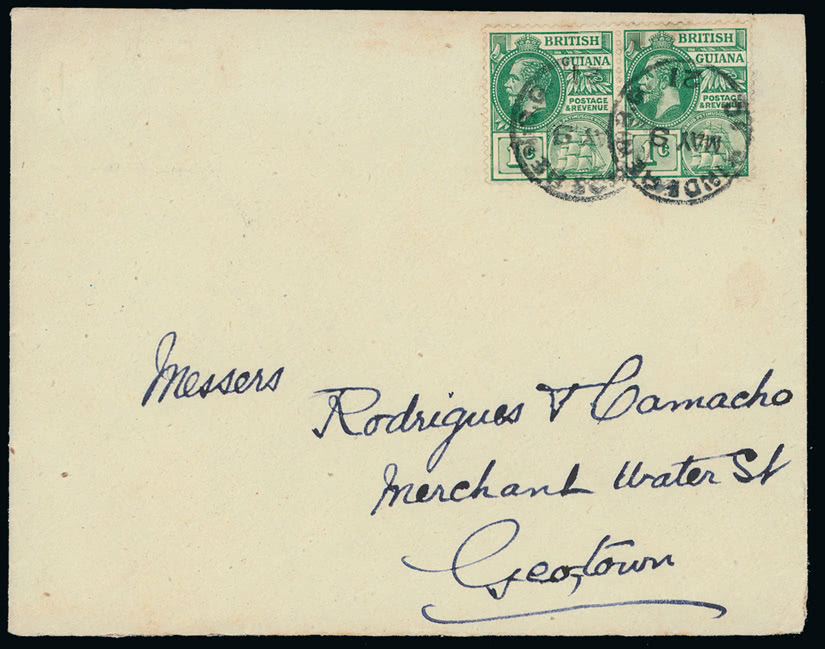 BRITISH
GUIANA
POSTAGE
& REVENUE
1c
BRITISH
GUIANA
POSTAGE
& REVENUE
1c
MAY 9
21
Messers
Rodrigues & Camacho
Merchant Water St
Geotown